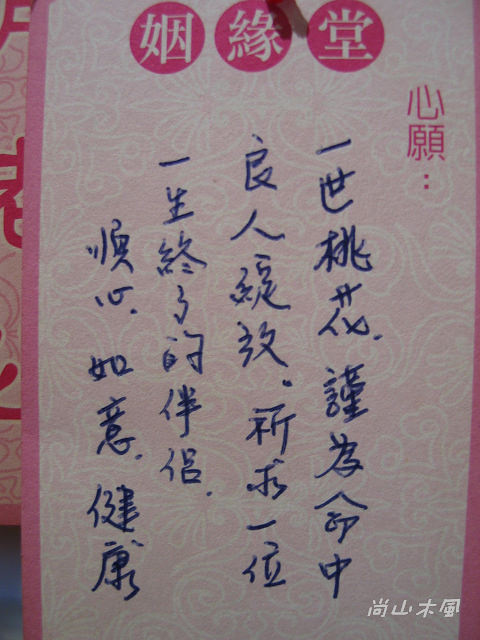 姻緣堂
心願：
一世桃花，謹為命中
良人綻放。祈求一位
一生終了的伴侶，
順心，如意，健康
尚山木風